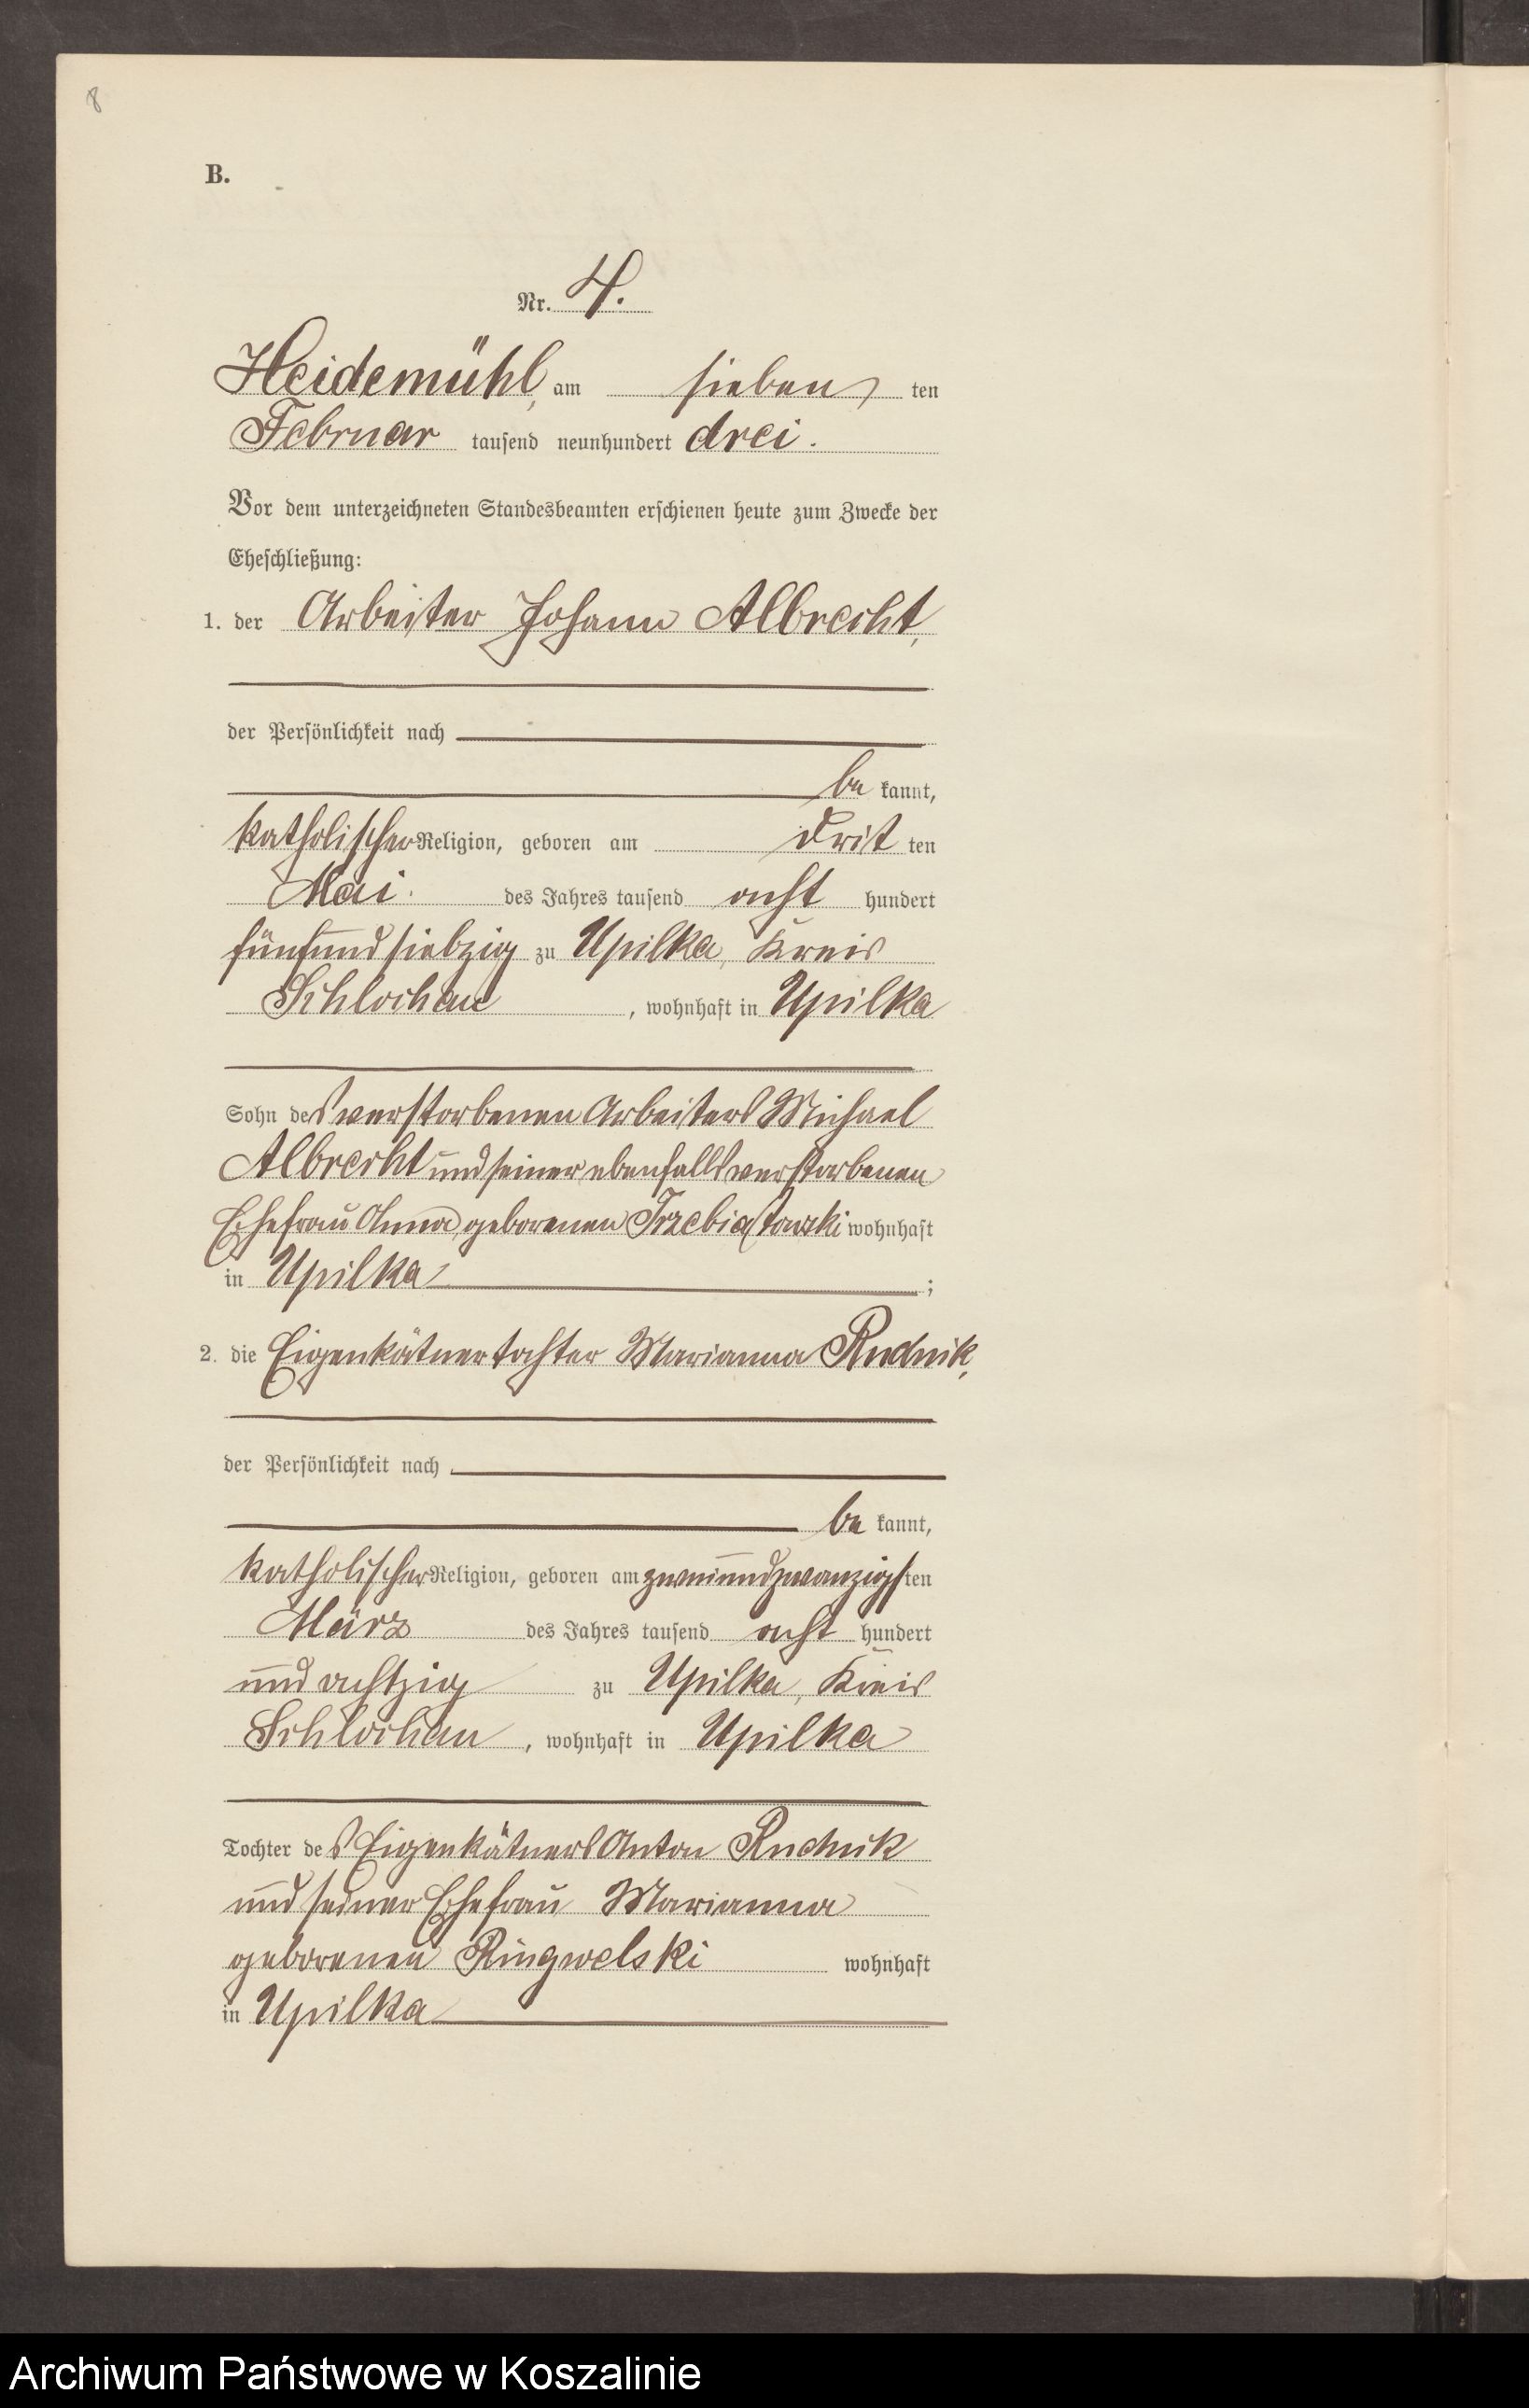 8
B.
Nr. 4.
Heidemühl, am sieben ten
Februar tausend neunhundert drei.
Vor dem unterzeichneten Standesbeamten erschienen heute zum Zwecke der
Eheschließung:
1. der Arbeiter Johann Albrecht,
der Persönlichkeit nach
be kannt,
katholischer Religion, geboren am drit ten
Mai. des Jahres tausend acht hundert
fünfundsiebzig zu Upilka, Kreis
Schlochau, wohnhaft in Upilka
Sohn des verstorbenen Arbeiters Michael
Albrecht und seiner ebenfalls verstorbenen
Ehefrau Anna, geborenen Trzebiatowski wohnhaft
in Upilka ;
2. die Eigenkätnertochter Marianna Rudnik,
der Persönlichkeit nach
be kannt,
katholischer Religion, geboren am zweiundzwanzigsten
März des Jahres tausend acht hundert
und achtzig zu Upilka, Kreis
Schlochau, wohnhaft in Upilka
Tochter des Eigenkätners Anton Rudnik
und seiner Ehefrau Marianna
geborenen Ringwelski wohnhaft
in Upilka
Archiwum Państwowe w Koszalinie